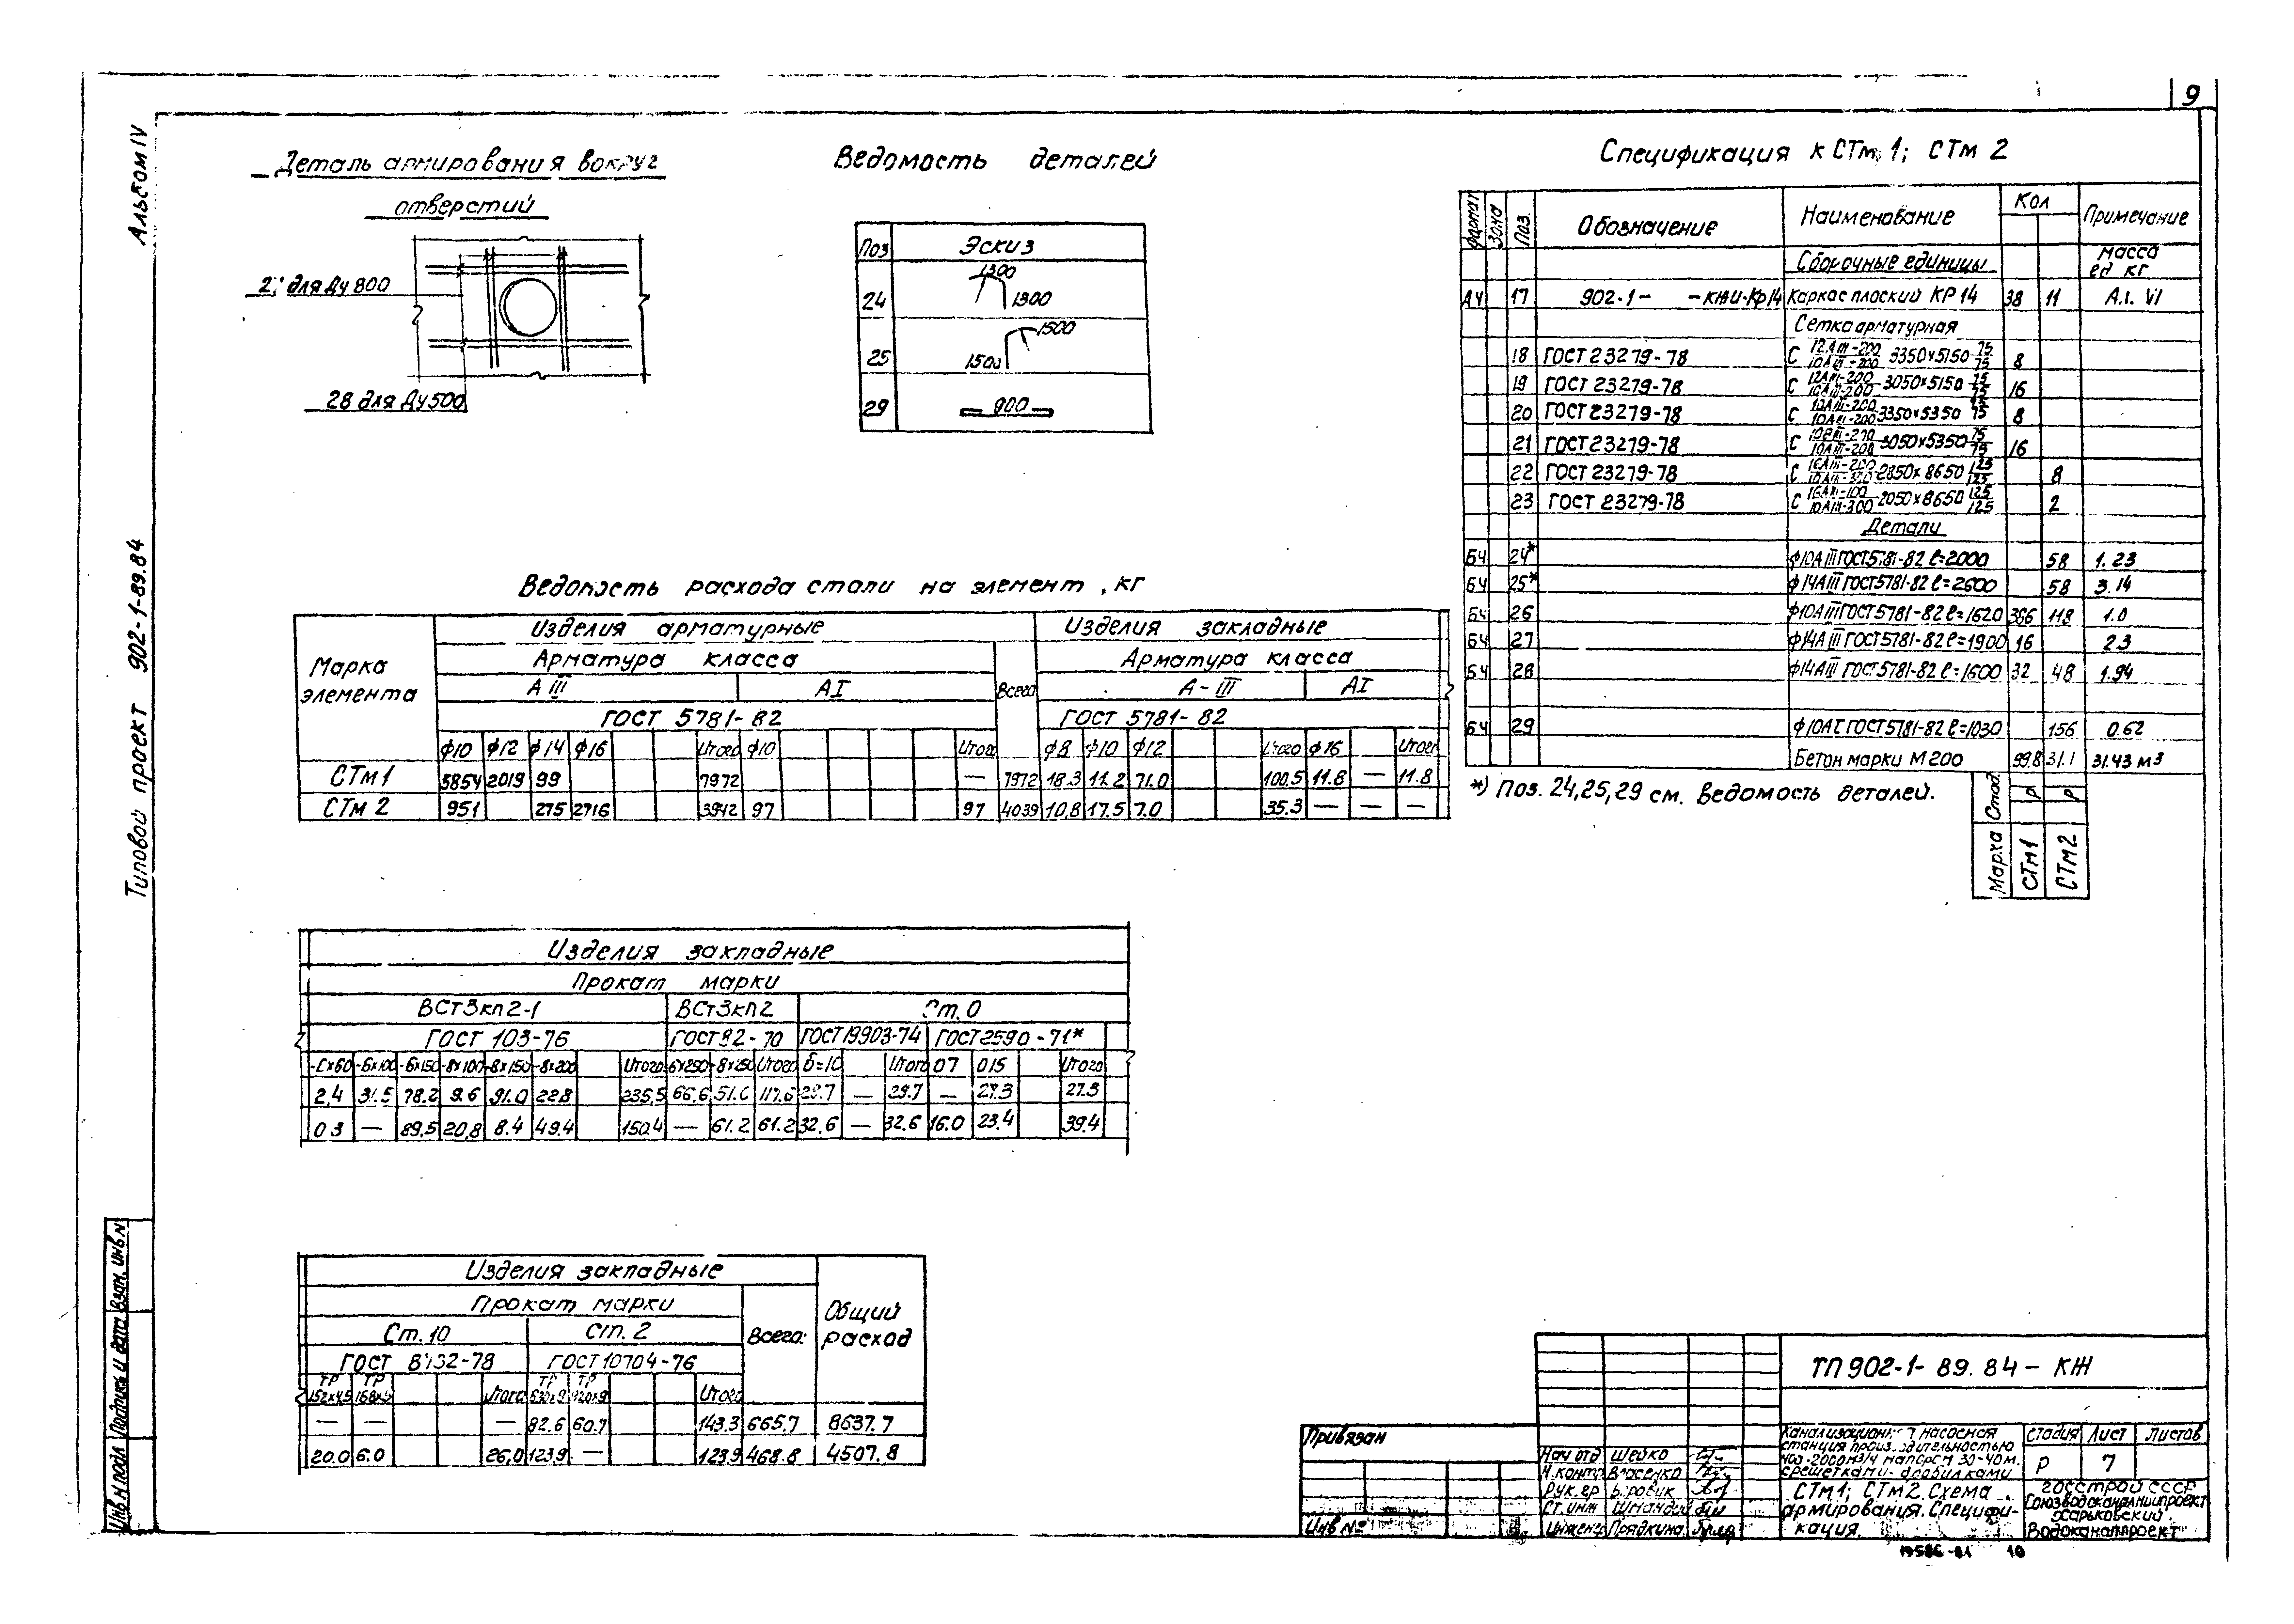 9
Альбом IV
Типовой проект 902-1-89.84
Деталь армирования вокруг
отверстий
для Ду 800
28 для Ду 500
Ведомость деталей
Поз Эскиз
24 1300 1300
25 1500 1500
29 900
Спецификация к СТм 1; СТм 2
Формат Зона Поз. Обозначение Наименование Кол Примечание
Сборочные единицы масса ед кг
17 902-1- -КЖИ-Кр14 Каркас плоский КР 14 38 11 А.I. VI
Сетка арматурная
18 ГОСТ 23279-78 С 12AIII-200/10AIII-200 3350×5150 75/75 8
19 ГОСТ 23279-78 С 12AIII-200/10AIII-200 3050×5150 75/75 16
20 ГОСТ 23279-78 С 10AIII-200/10AIII-200 3350×5350 75/75 8
21 ГОСТ 23279-78 С 3050×5350 75/75 16
22 ГОСТ 23279-78 С 16AIII-200/10AIII-300 2850×8650 125/125 8
23 ГОСТ 23279-78 С 16AIII-100/10AIII-300 2050×8650 125/125 2
Детали
БЧ 24* ф10АIII ГОСТ 5781-82 ℓ=2000 58 1.23
БЧ 25* ф14АIII ГОСТ 5781-82 ℓ=2600 58 3.14
БЧ 26 ф10АIII ГОСТ 5781-82 ℓ=1620 118 1.0
БЧ 27 ф14АIII ГОСТ 5781-82 ℓ=1900 16 2.3
БЧ 28 ф14АIII ГОСТ 5781-82 ℓ=1600 32 48 1.94
БЧ 29 ф10АI ГОСТ 5781-82 ℓ=1030 156 0.62
Бетон марки М200 99.8 31.1 31.43 м3
*) Поз. 24,25,29 см. ведомость деталей.
Марка Стад.
СТм1 Р
СТм2 Р
Ведомость расхода стали на элемент, кг
Марка элемента Изделия арматурные Изделия закладные
Арматура класса Всего Арматура класса
А III АI А-III АI
ГОСТ 5781-82 ГОСТ 5781-82
ф10 ф12 ф14 ф16 Итого ф10 Итого ф8 ф10 ф12 Итого ф16 Итого
СТм1 5854 2019 99 7972 — 7972 18.3 11.2 71.0 100.5 11.8 — 11.8
СТм 2 951 275 2716 3942 97 97 4039 10,8 17.5 7.0 35.3 — — —
Изделия закладные
Прокат марки
ВСт3кп2-1 ВСт3кп2 Ст.0
ГОСТ 103-76 ГОСТ 82-70 ГОСТ 19903-74 ГОСТ 2590-71*
-6×60 -6×100 -6×150 -8×100 -8×150 -8×200 Итого 6×250 -8×250 Итого δ=10 Итого 07 015 Итого
2,4 31.5 78.2 9.6 91.0 22.8 235,5 66.6 51.0 117.6 29.7 — 29.7 — 27.3 27.3
0 3 — 89,5 20,8 8.4 49.4 150.4 — 61.2 61.2 32.6 — 32.6 16.0 23.4 39.4
Изделия закладные
Прокат марки Всего: Общий расход
Ст.10 Ст.2
ГОСТ 8732-78 ГОСТ 10704-76
ТР 152×4,5 ТР 168×5 Итого ТР 630×9 ТР 920×9 Итого
— — — 82.6 60.7 143.3 665.7 8637.7
20.0 6.0 26,0 123.9 — 123.9 468.8 4507.8
ТП 902-1-89.84-КЖ
Привязан
Инв №
Нач отд Шейко
Н.контр. Власенко
Рук.гр Боровик
Ст.инж
Инженер Прядкина
Канализационная насосная
станция производительностью
400-2000м3/ч напором 30-40м.
с решетками-дробилками
Стадия Лист Листов
Р 7
СТм1; СТм2. Схема
армирования. Специфи-
кация.
Госстрой СССР
Союзводоканалниипроект
Харьковский
Водоканалпроект
10
Инв N подл Подпись и дата Взам. инв N